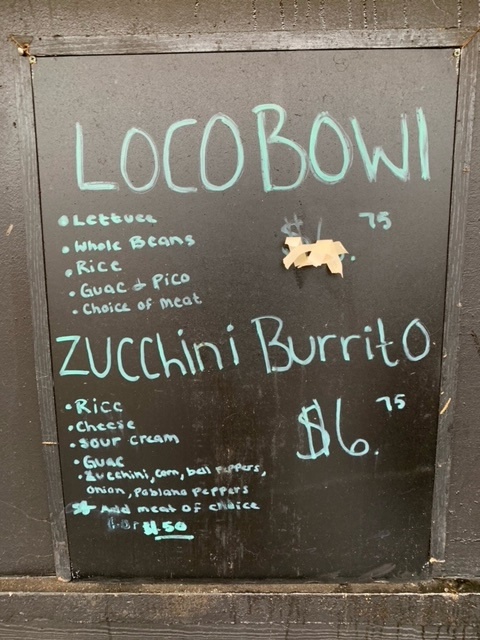 LOCO BOWl
• Lettuce
• Whole Beans
• Rice
• Guac & Pico
• Choice of meat
$ .75
ZUCChini BurritO
• Rice
• Cheese
• Sour Cream
• Guac
• Zucchini, Corn, bell Peppers,
onion, Poblano Peppers
Add meat of choice
for $1.50
$6.75